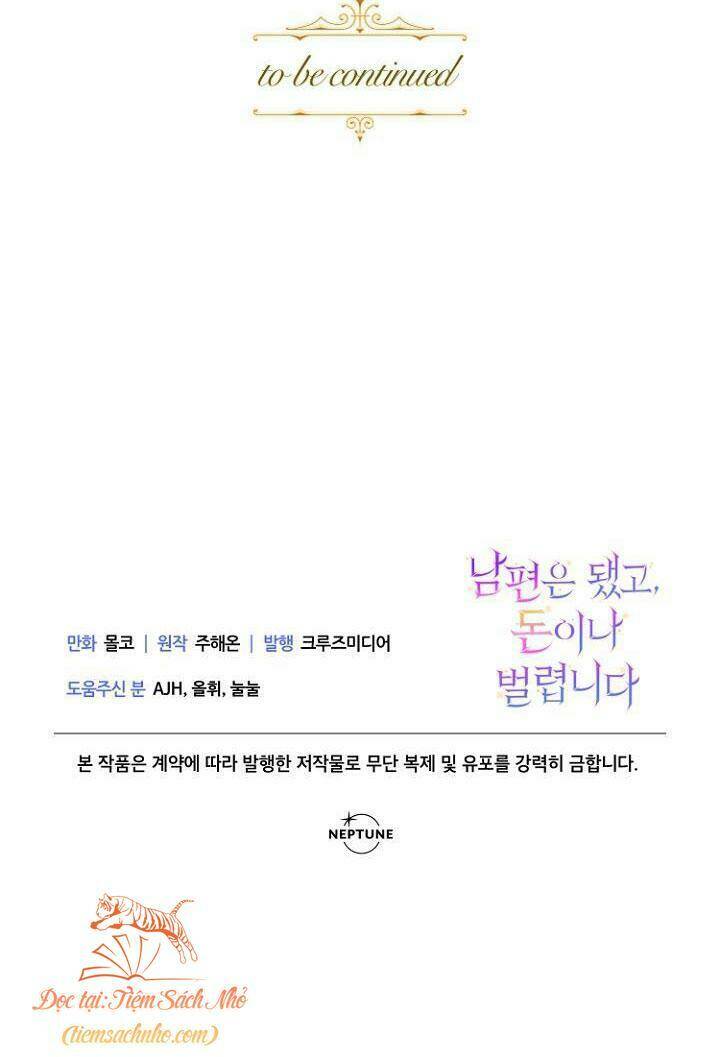 to be continued
남편은 됐고,
돈이나
벌렵니다
만화 몰코 | 원작 주해온 | 발행 크루즈미디어
도움주신 분 AJH, 올휘, 눌눌
본 작품은 계약에 따라 발행한 저작물로 무단 복제 및 유포를 강력히 금합니다.
NEPTUNE
Đọc tại: Tiệm Sách Nhỏ
(tiemsachnho.com)